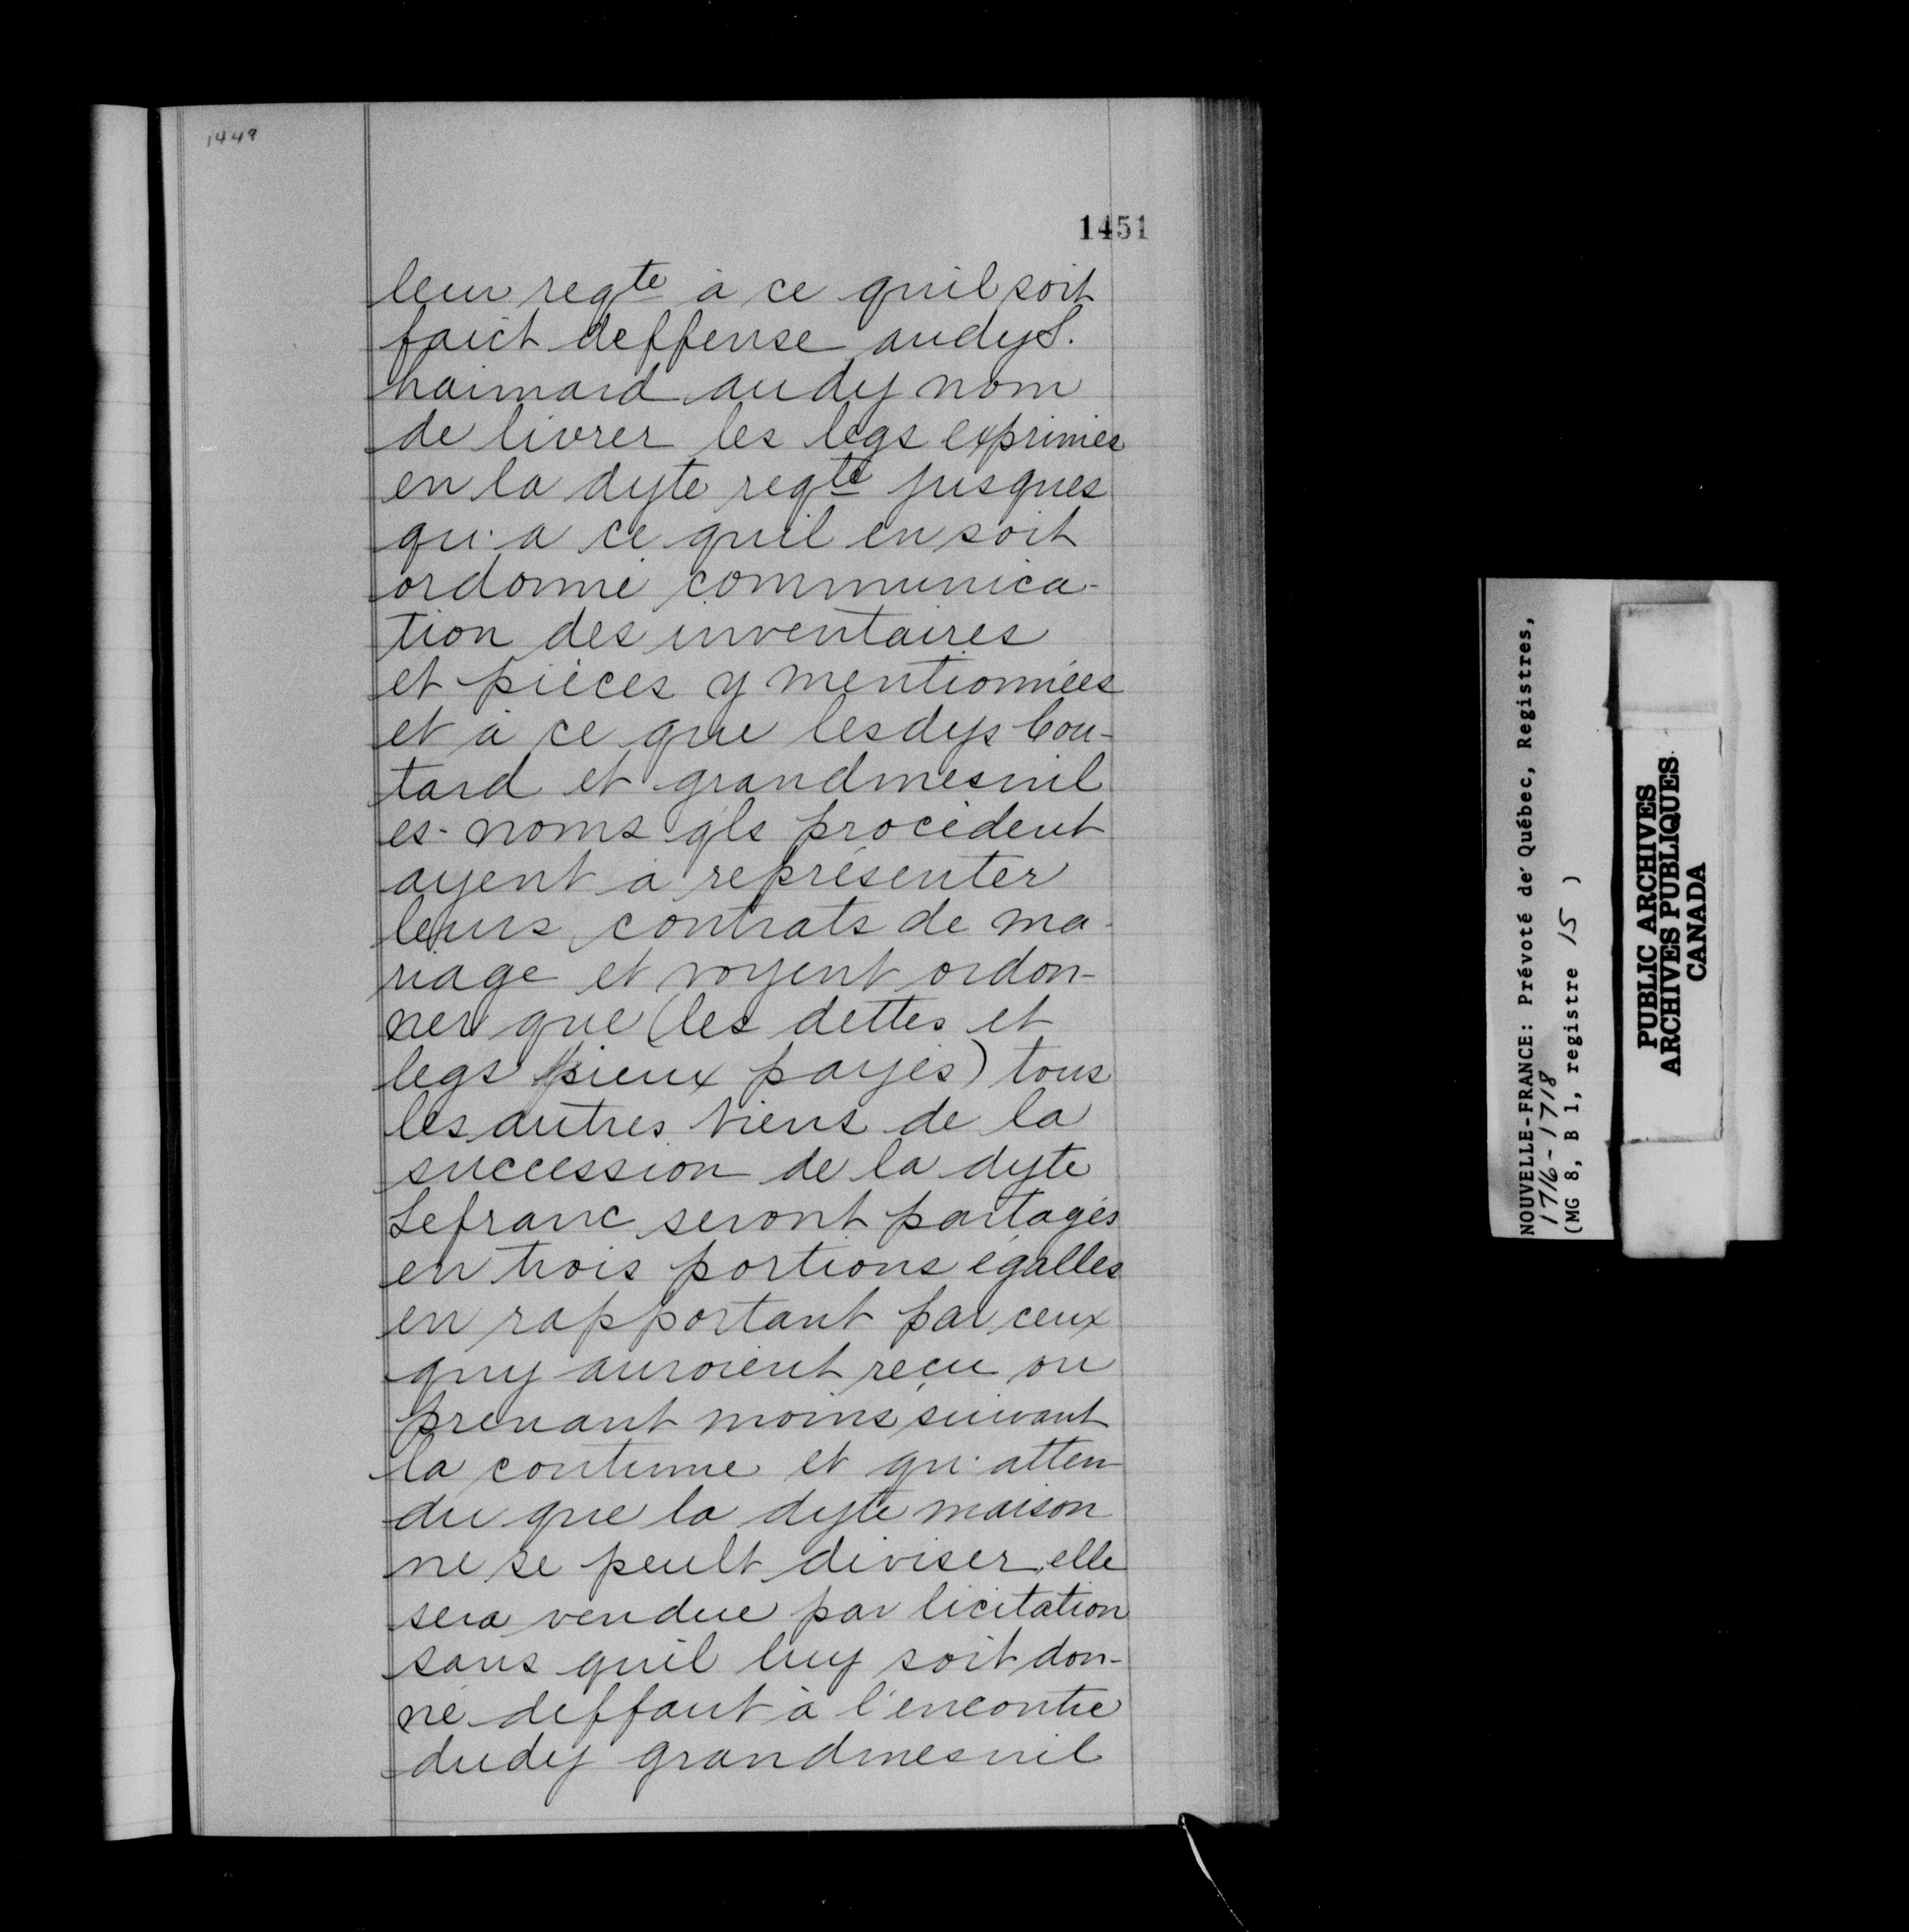 1449
1451
leur reqte à ce quil soit
faict deffense audy S.
haimard audy nom
de livrer les legs exprimés
en la dyte reqte jusques
qu'a ce quil en soit
ordonné communica-
tion des inventaires
et pièces y mentionnées
et à ce que lesdys Cou-
tard et grandmesnil
es-noms qls procèdent
ayent à représenter
leurs contrats de ma-
riage et voyent ordon-
ner que (les dettes et
legs pieux payés) tous
les autres biens de la
succession de la dyte
Lefranc seront partagés
en trois portions égalles
en rapportant par ceux
quy auroient reçu ou
prenant moins suivant
la coutume et qu'atten-
du que la dyte maison
ne se peult diviser, elle
sera vendue par licitation
sans quil luy soit don-
né deffaut à l'encontre
dudy grandmesnil
NOUVELLE-FRANCE: Prévoté de Québec, Registres,
1716-1718
(MG 8, B 1, registre 15 )
PUBLIC ARCHIVES
ARCHIVES PUBLIQUES
CANADA